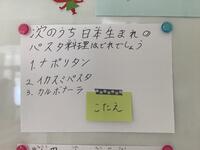 次のうち日本生まれの
パスタ料理はどれでしょう
1.ナポリタン
2.イカスミパスタ
3.カルボナーラ
こたえ